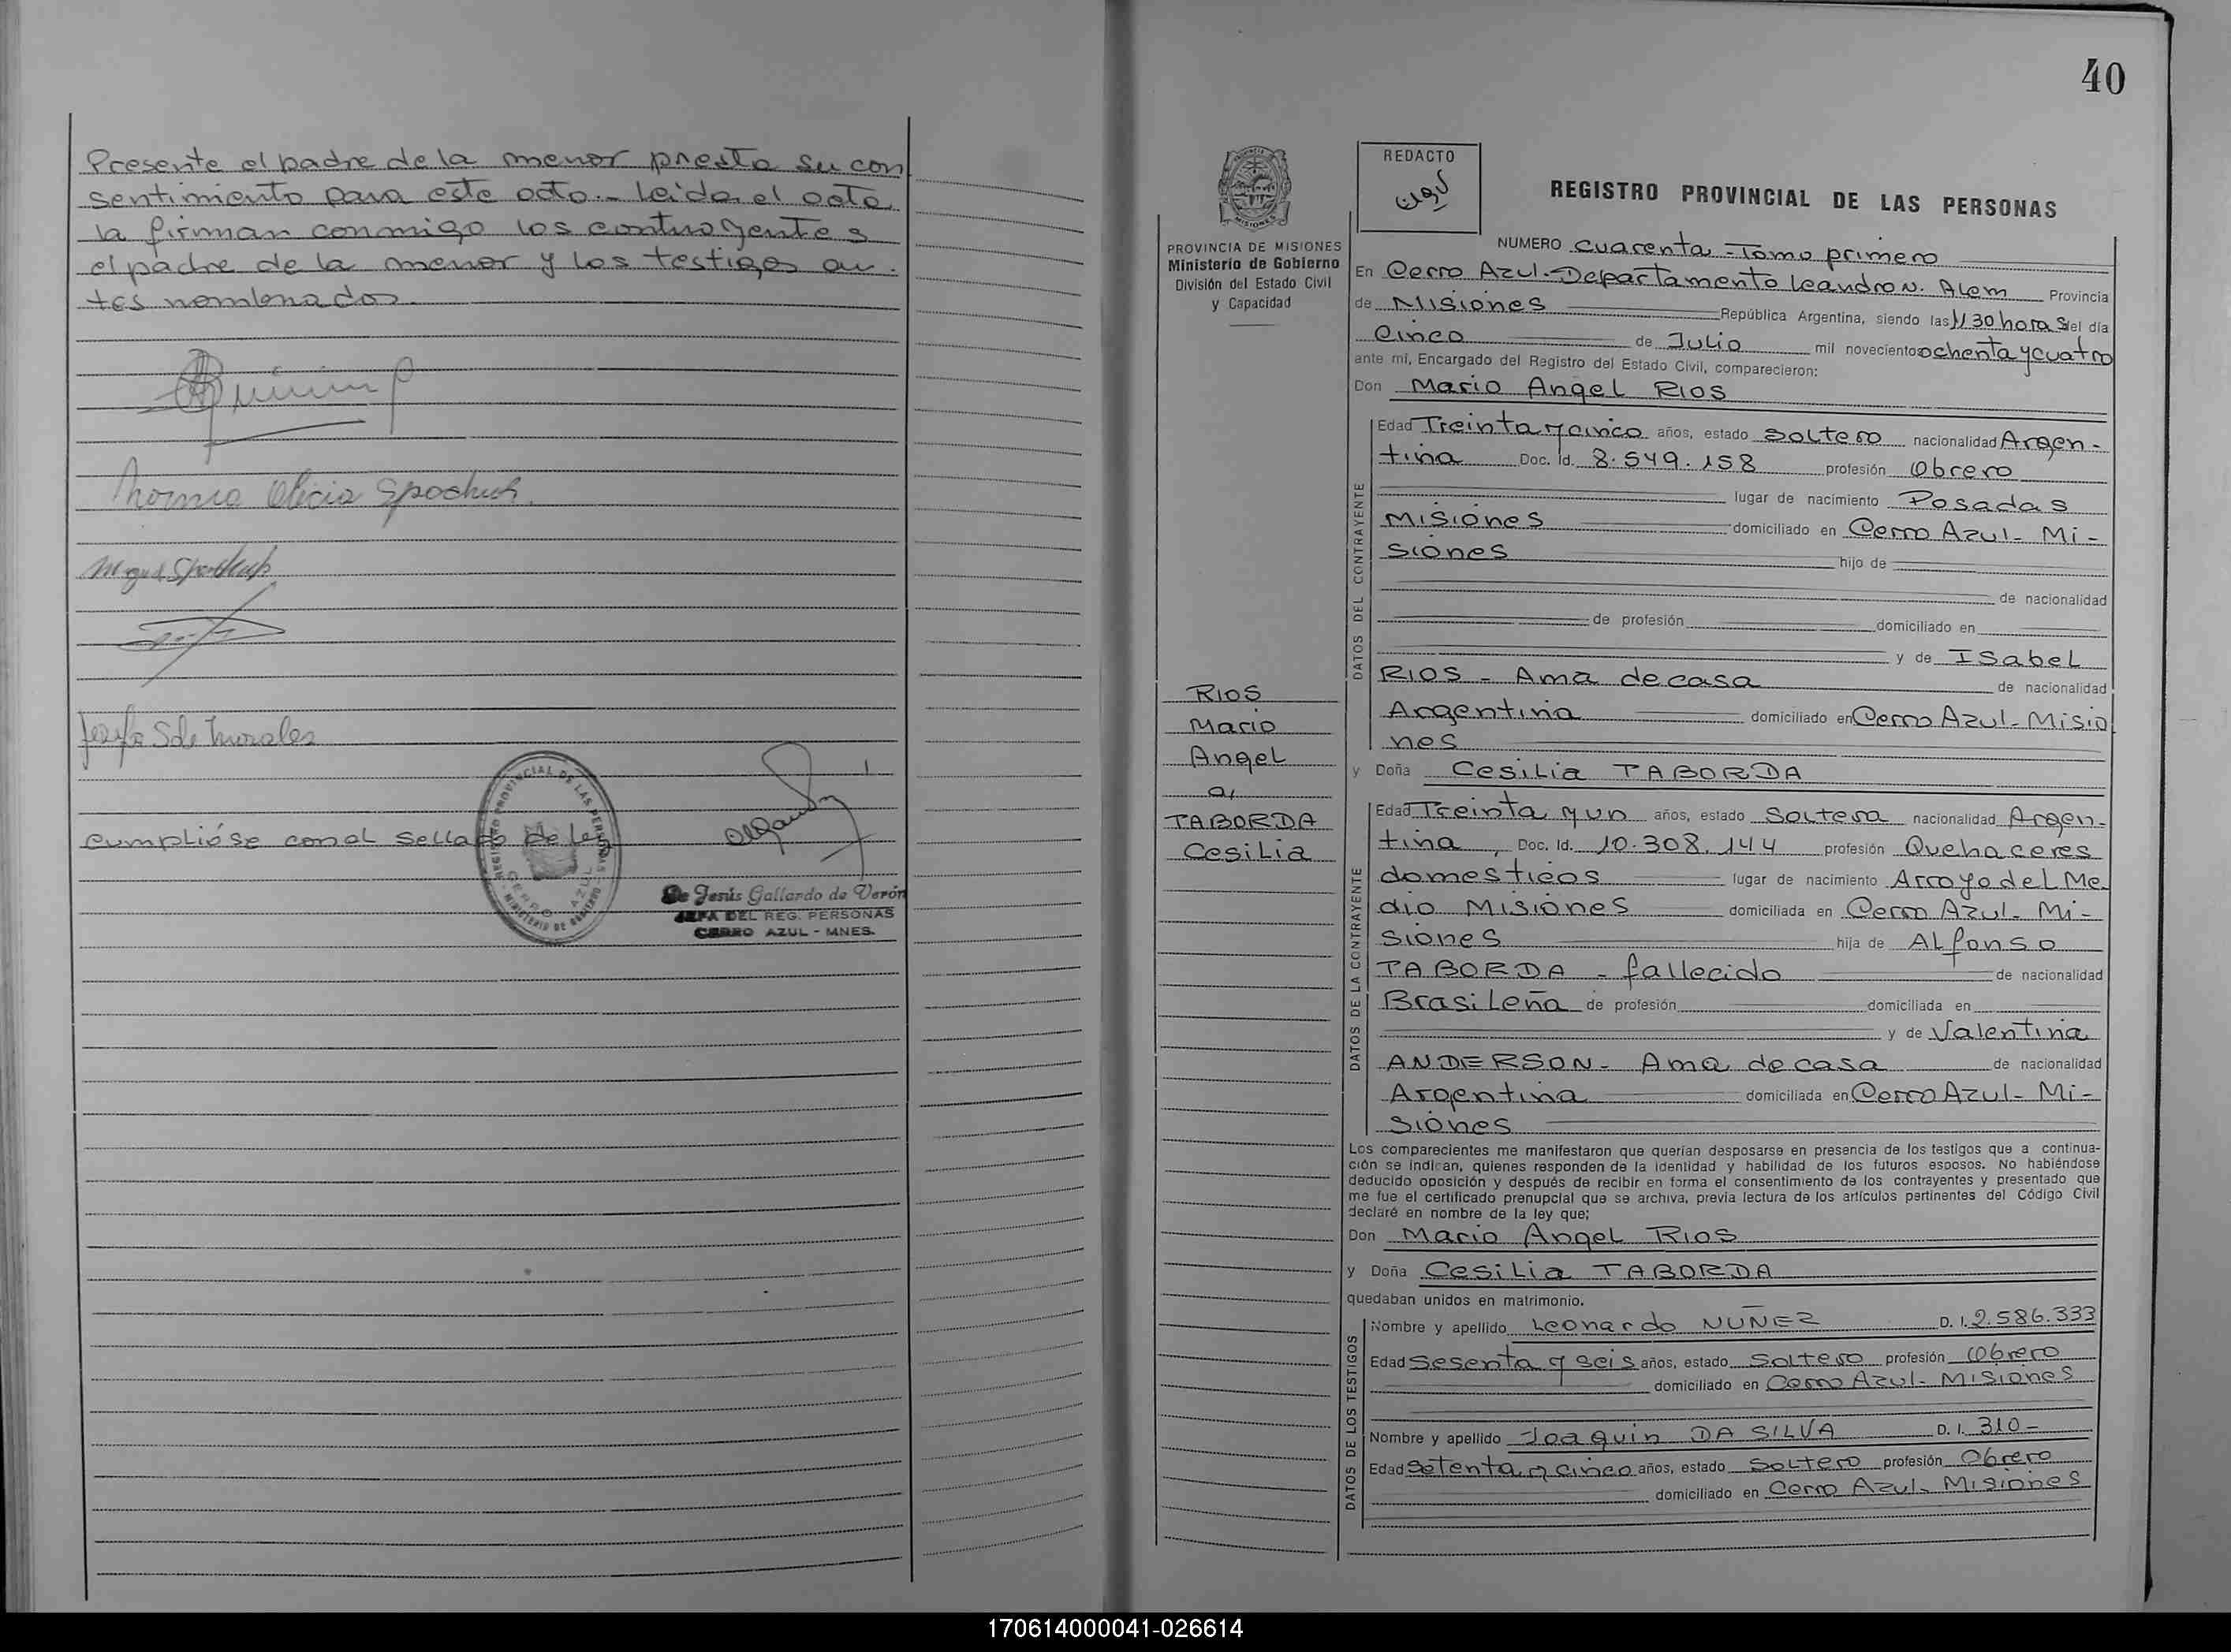 Presente el padre de la menor presta su con
sentimiento para este acto.- Leida el acta
la firman conmigo los contrayentes
el padre de la menor y los testigos an
tes nombrados.
Norma Alicia Spachuk
Josefa S de Morales
Cumplióse con el sellado de ley
REGISTRO PROVINCIAL DE LAS PERSONAS
MINISTERIO DE GOBIERNO
CERRO AZUL
De Jesús Gallardo de Verón
JEFA DEL REG. PERSONAS
CERRO AZUL - MNES.
40
PROVINCIA DE MISIONES
Ministerio de Gobierno
División del Estado Civil
y Capacidad
RIOS
Mario
Angel
a,
TABORDA
Cesilia
REDACTO
REGISTRO PROVINCIAL DE LAS PERSONAS
NUMERO cuarenta - Tomo primero
En Cerro Azul - Departamento Leandro N. Alem Provincia
de Misiones República Argentina, siendo las 11 30 horas del día
Cinco de Julio mil novecientos ochenta y cuatro
ante mi, Encargado del Registro del Estado Civil, comparecieron:
Don Mario Angel RIOS
DATOS DEL CONTRAYENTE
Edad Treinta y cinco años, estado Soltero nacionalidad Argen-
tina Doc. Id. 8.549.158 profesión Obrero
lugar de nacimiento Posadas
Misiones domiciliado en Cerro Azul- Mi-
siones hijo de
de nacionalidad
de profesión domiciliado en
y de Isabel
RIOS - Ama de casa de nacionalidad
Argentina domiciliado en Cerro Azul- Misio
nes
y Doña Cesilia TABORDA
DATOS DE LA CONTRAYENTE
Edad Treinta y un años, estado Soltera nacionalidad Argen-
tina, Doc. Id. 10.308.144 profesión Quehaceres
domesticos lugar de nacimiento Arroyo del Me-
dio Misiones domiciliada en Cerro Azul- Mi-
siones hija de Alfonso
TABORDA - fallecido de nacionalidad
Brasileña de profesión domiciliada en
y de Valentina
ANDERSON- Ama de casa de nacionalidad
Argentina domiciliada en Cerro Azul- Mi-
siones
Los comparecientes me manifestaron que querían desposarse en presencia de los testigos que a continua-
ción se indican, quienes responden de la identidad y habilidad de los futuros esposos. No habiéndose
deducido oposición y después de recibir en forma el consentimiento de los contrayentes y presentado que
me fue el certificado prenupcial que se archiva, previa lectura de los artículos pertinentes del Código Civil
declaré en nombre de la ley que;
Don Mario Angel RIOS
y Doña Cesilia TABORDA
quedaban unidos en matrimonio.
DATOS DE LOS TESTIGOS
Nombre y apellido Leonardo NUÑEZ D. I. 2.586.333
Edad Sesenta y seis años, estado Soltero profesión Obrero
domiciliado en Cerro Azul- Misiones
Nombre y apellido Joaquin DA SILVA D. I. 310-
Edad Setenta y cinco años, estado Soltero profesión Obrero
domiciliado en Cerro Azul- Misiones
170614000041-026614